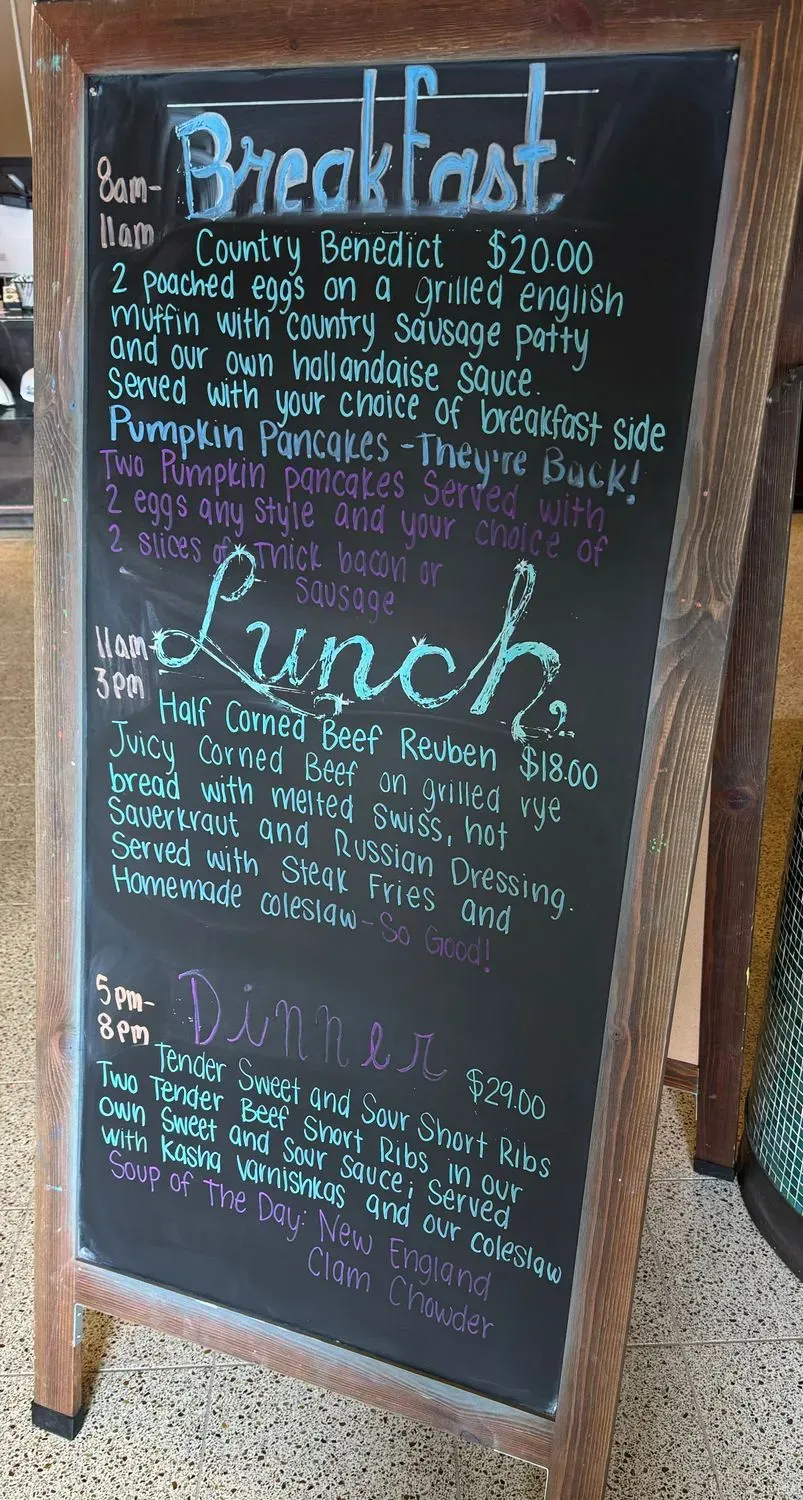 Breakfast
8am-
11am
Country Benedict $20.00
2 poached eggs on a grilled english
muffin with country sausage patty
and our own hollandaise sauce.
Served with your choice of breakfast side
Pumpkin Pancakes - They're Back!
Two Pumpkin pancakes Served with
2 eggs any style and your choice of
2 slices of Thick bacon or
Sausage
Lunch
11am-
3pm
Half Corned Beef Reuben $18.00
Juicy Corned Beef on grilled rye
bread with melted swiss, hot
Sauerkraut and Russian Dressing.
Served with Steak Fries and
Homemade coleslaw - So Good!
Dinner
5pm-
8pm
$29.00
Tender Sweet and Sour Short Ribs
Two Tender Beef Short Ribs in our
own Sweet and Sour sauce; Served
with Kasha Varnishkas and our coleslaw
Soup of The Day: New England
Clam Chowder